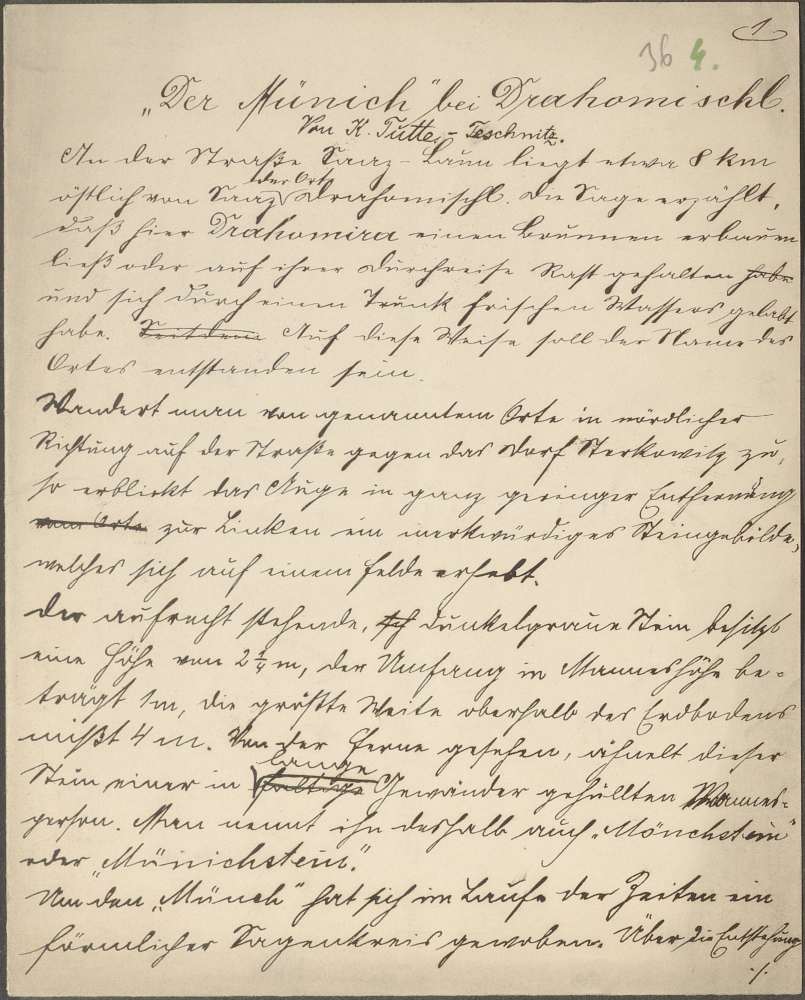 1
36 4.
„Der Münich" bei Drahomischl.
Von K. Tutte, – Teschnitz.
An der Straße Saaz – Laun liegt etwa 8 km
östlich von Saaz der Ort Drahomischl. Die Sage erzählt,
daß hier Drahomira einen Brunnen erbauen
ließ oder auf ihrer Durchreise Rast gehalten habe
und sich durch einen Trunk frischen Wassers gelabt
habe. Seitdem Auf diese Weise soll der Name des
Ortes entstanden sein.
Wandert man von genanntem Orte in nördlicher
Richtung auf der Straße gegen das Dorf Sterkowitz zu,
so erblickt das Auge in ganz geringer Entfernung
vom Orte zur Linken ein merkwürdiges Steingebilde,
welches sich auf einem Felde erhebt.
Der aufrecht stehende, sch dunkelgraue Stein besitzt
eine Höhe von 2 1/4 m, der Umfang in Manneshöhe be-
trägt 1m, die größte Weite oberhalb des Erdbodens
mißt 4 m. Von der Ferne gesehen, ähnelt dieser
Stein einer in faltige lange Gewänder gehüllten Mannes-
person. Man nennt ihn deshalb auch „Mönchstein"
oder „Münichstein".
Um den „Münch" hat sich im Laufe der Zeiten ein
förmlicher Sagenkreis gewoben. Über die Entstehung
./.